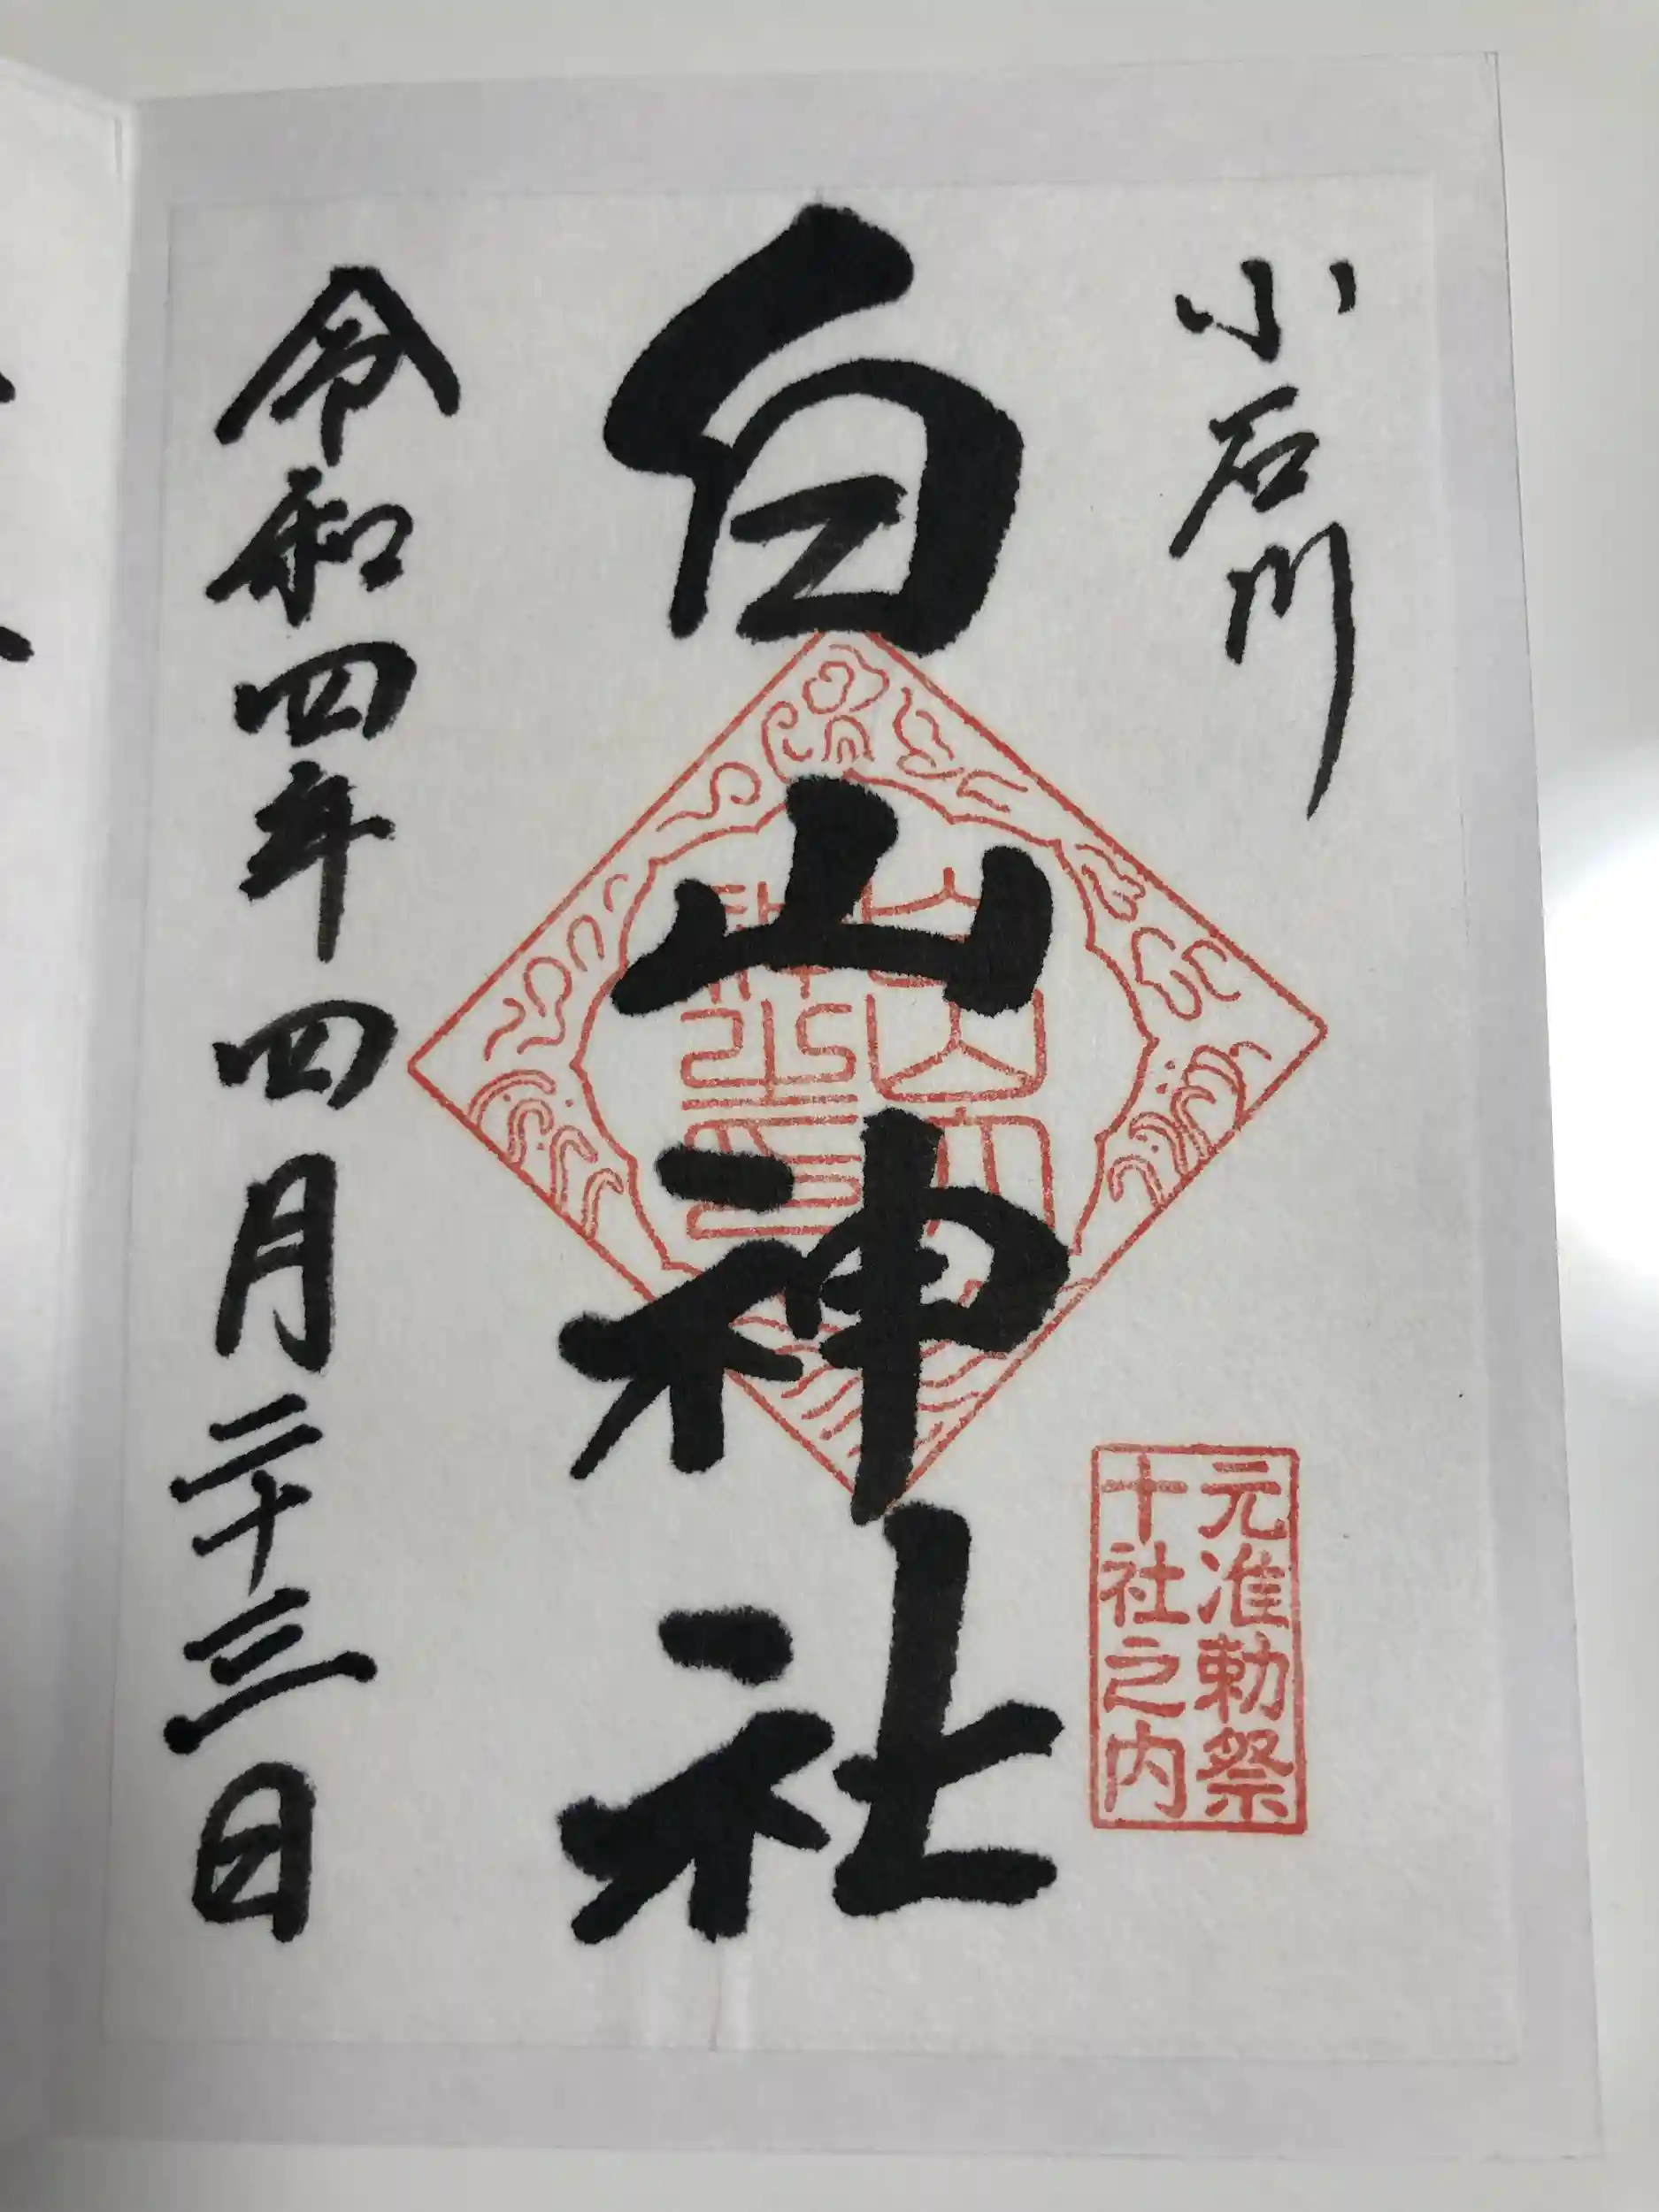 小石川
元准勅祭
十社之内
白山神社
令和四年四月二十三日